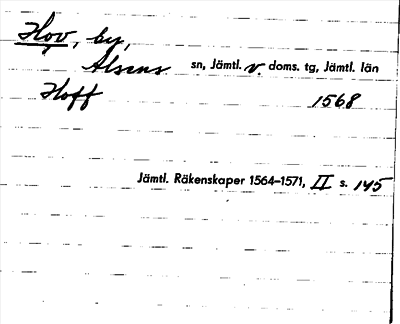 Hov, by,
Alsens sn, Jämtl. v. doms. tg, Jämtl. län
Hoff 1568
Jämtl. Räkenskaper 1564–1571, II s. 145